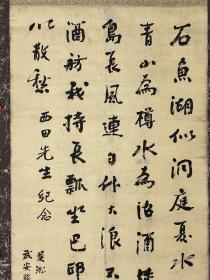 石魚湖似洞庭夏水
青山為樽水為沼酒徒
島長風連日作大浪不
酒舫我持長瓢坐巴邱
以散愁 西田先生紀念